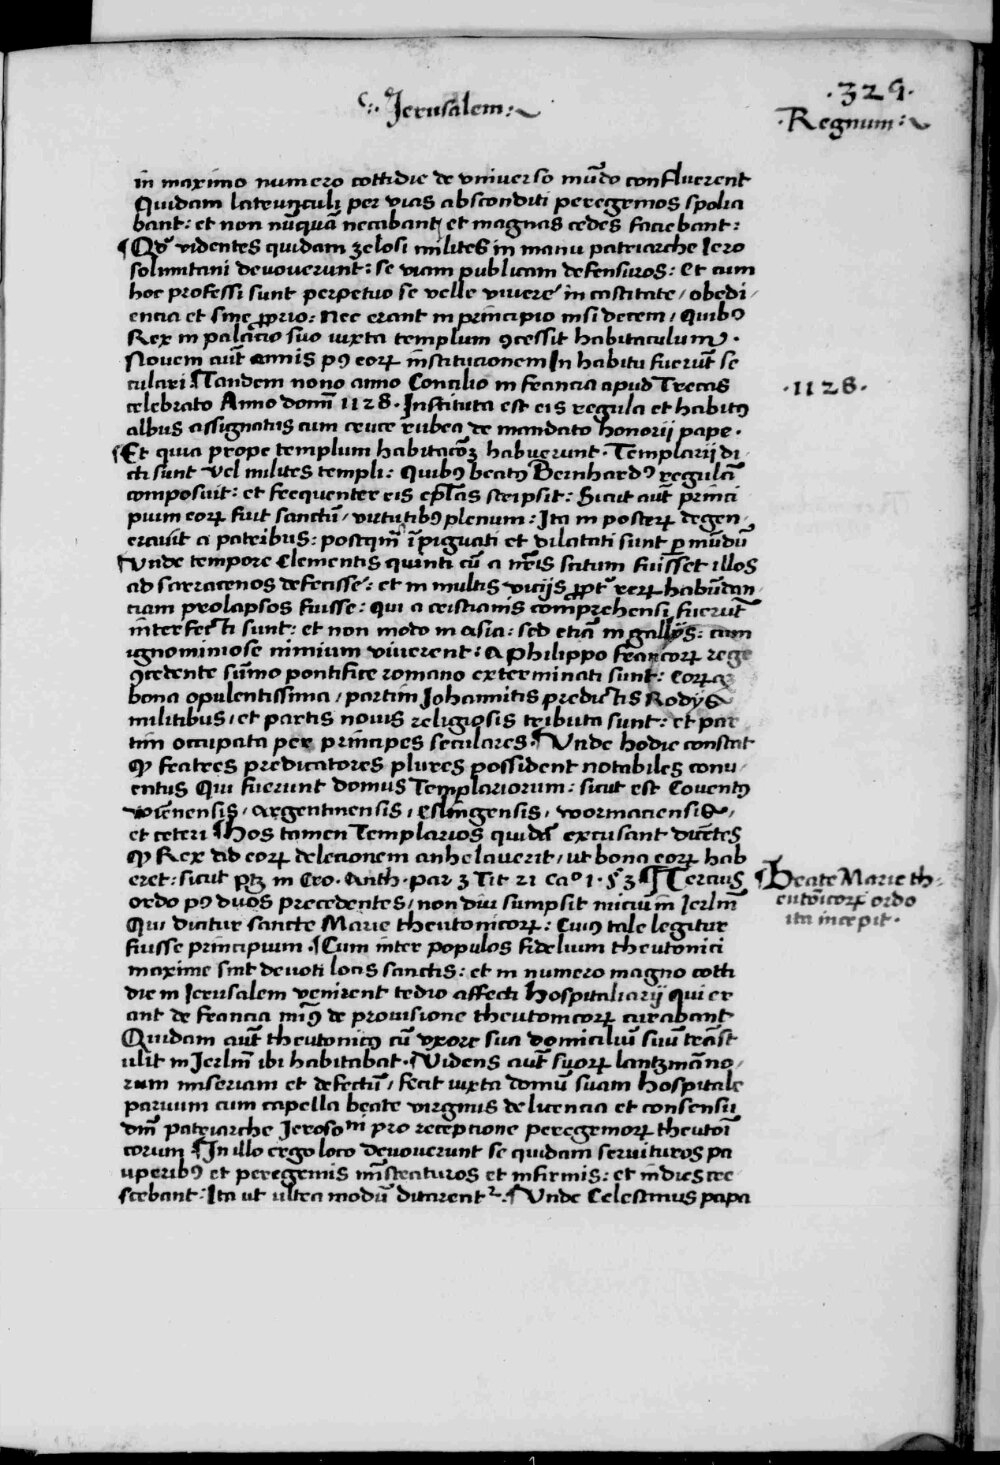 Jerusalem:
.329.
Regnum:
in maximo numero cottidie de vniuerso mūdo confluerent
Quidam latrunculi per vias absconditi peregrinos spolia
bant: et non nūquā necabant et magnas cedes faciebant:
¶Qd' videntes quidam zelosi milites in manu patriarche Iero
solimitani deuouerunt: se viam publicam defensuros: Et cum
hoc professi sunt perpetuo se velle viuere in castitate / obedi /
encia et sine ꝓprio: Nec erant in principio nisi decem / Quibꝰ
Rex in palacio suo iuxta templum ꝯcessit habitaculum.
Nouem aūt annis pꝰ eoꝝ institucionem In habitu fuerūt se
culari ¶Tandem nono anno Concilio in francia apud Trecas
celebrato Anno domī 1128. Instituta est eis regula et habitꝰ
.1128.
albus assignatus cum cruce rubea de mandato honorij pape.
¶Et quia prope templum habitacōꝫ habuerunt. Templarij di /
cti sunt vel milites templi: Quibꝰ beatꝰ Bernhardꝰ regulā
composuit: et frequenter eis epl̄as scripsit: Sicut aūt princi
pium eoꝝ fuit sanctū / virtutibꝰ plenum: Ita in posteꝝ degen /
erauit a patribus: postqm̄ īpiguati et dilatati sunt ꝑ mūdū
¶Vnde tempore Clementis quinti cū a nr̄is satum fuisset illos
ad sarracenos defecisse: et in multis vicijs ꝓpt' reꝝ habūdan /
ciam prolapsos fuisse: qui a cristianis comprehensi fuerūt
interfecti sunt: et non modo in asia: sed etiā in gallijs: cum
ignominiose nimium viuerent: a Philippo francoꝝ rege
ꝯcedente sūmo pontifice romano exterminati sunt: Eoꝝqꝫ
bona opulentissima / partim Johannitis predictis Rodijs
militibus / et partis nouis religiosis tributa sunt: et par
tim occupata per principes seculares. ¶Vnde hodie constat
ꝙ fratres predicatores plures possident notabiles conu /
entus Qui fuerunt domus Templariorum: sicut est Couentꝰ
wiēnensis / argentinensis / Eslingensis / wormaciensis /
et ceteri ¶Hos tamen Templarios quidā excusant dicētes
ꝙ Rex ad eoꝝ delecionem anhelauerit / ut bona eoꝝ hab
eret: sicut ptꝫ in Cro. Anth. par 3 Tit 21 Ca⁰ 1. §. 3. ¶Tercius
Beate Marie th=
eutōicoꝝ ordo
ita incepit.
ordo pꝰ duos precedentes / non diu sumpsit inicium in Jerlm̄
Qui dicitur sancte Marie theutonicoꝝ: Cuiꝰ tale legitur
fuisse principium. ¶Cum inter populos fidelium theutonici
maxime sint deuoti locis sanctis: et in numero magno cotti
die in Jerusalem venirent tedio affecti hospitaliarij qui er
ant de francia miꝰ de prouisione theutonicoꝝ curabant
Quidam aūt theutonicꝰ cū vxore sua domicilium suū trāst
ulit in Jerlm̄ ibi habitabat. ¶Videns aūt suoꝝ lantzmāno /
rum miseriam et defectū / fecit iuxta domū suam hospitale
paruum cum capella beate virginis de licencia et consensu
dn̄i patriarche Jerosoni pro receptione peregrinoꝝ theutoī
corum ¶In illo ergo loco deuouerunt se quidam seruituros pa
uperibꝰ et peregrinis mīstraturos et infirmis: et indies cre
scebant: Ita ut ultra modū ditarent². ¶Vnde Celestinus papa